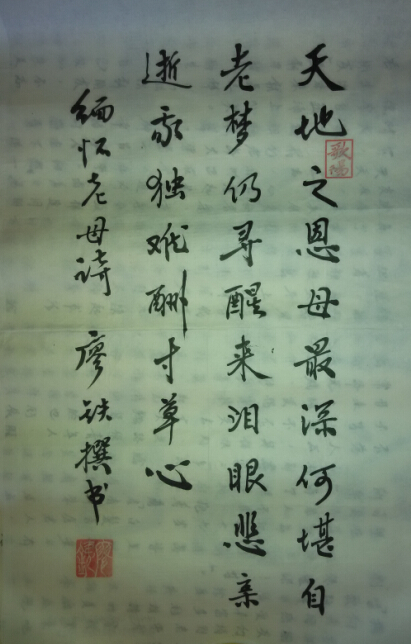 天地之恩母最深何堪自
老梦仍寻醒来泪眼悲亲
逝我独难酬寸草心
缅怀老母诗 廖铁撰书